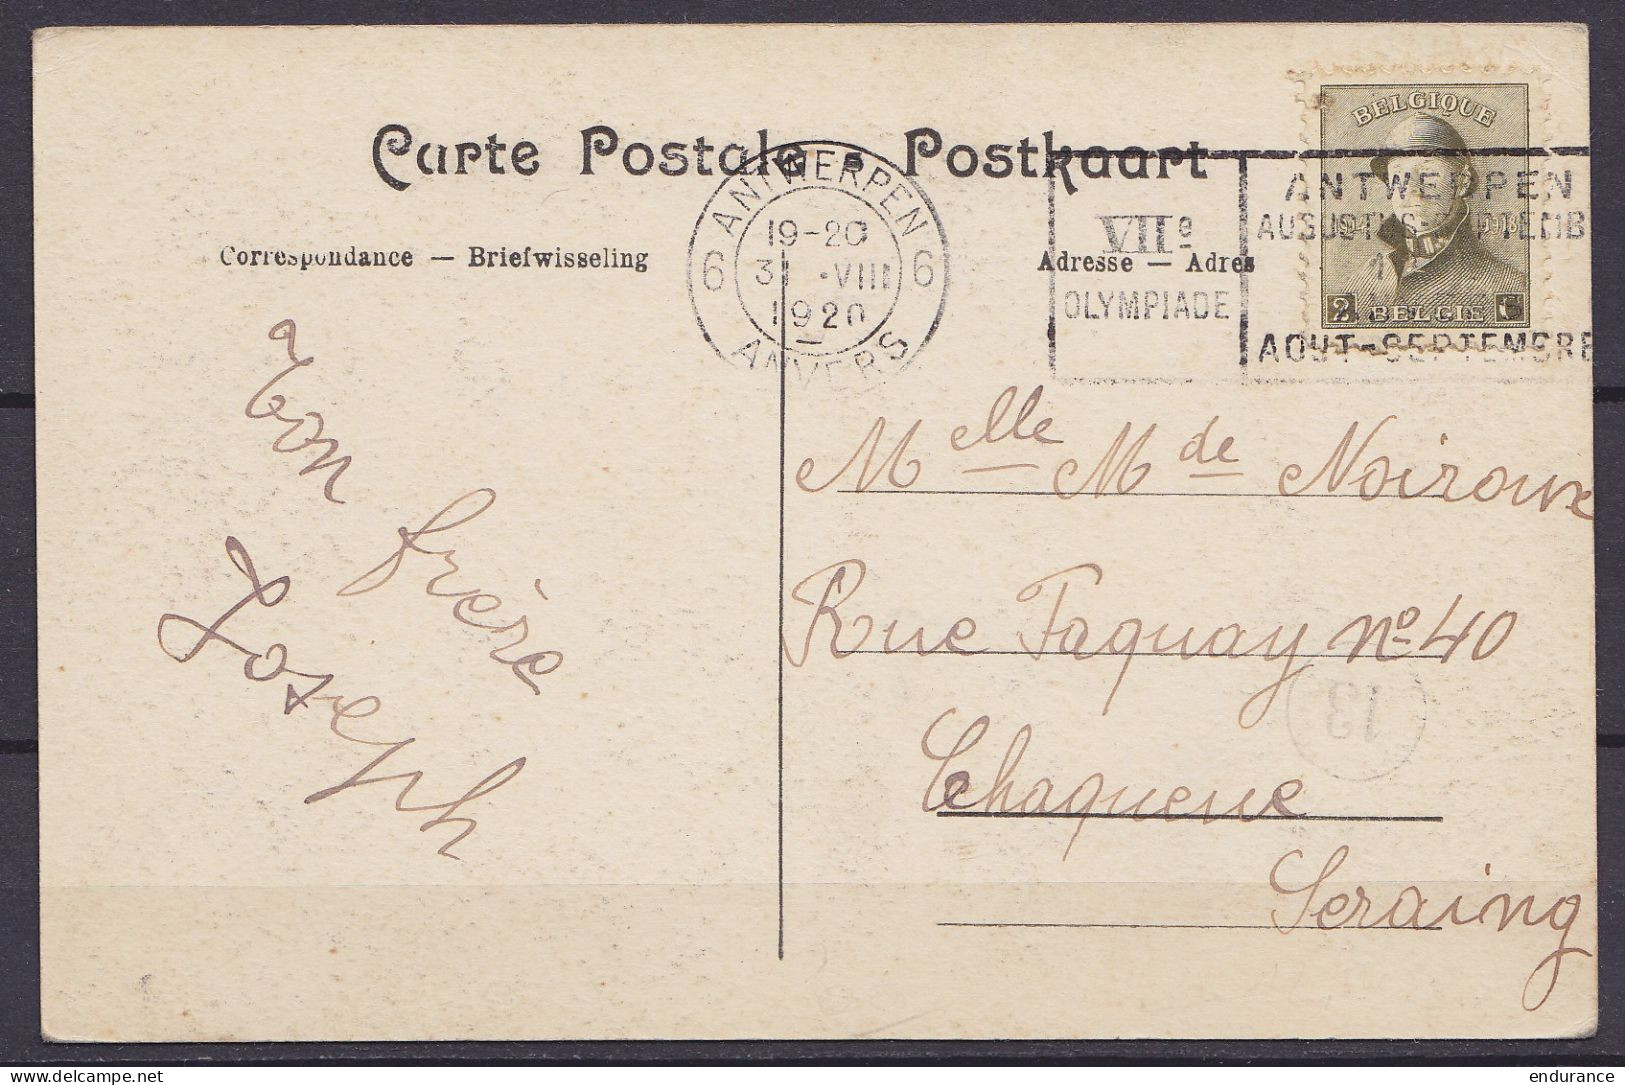 Carte Postale • Postkaart
Correspondance — Briefwisseling
Adresse — Adres
ANTWERPEN
6 6
19-20
31 -VIII
1920
ANVERS
VIIe
OLYMPIADE
ANTWERPEN
AUGUSTUS-SEPTEMB
AOUT-SEPTEMBRE
BELGIQUE
2 BELGIE C
Mon frère
Joseph
Melle Mde Noiroux
Rue Faquay no 40
Chaqueue
Seraing
13
endurance
delcampe.net